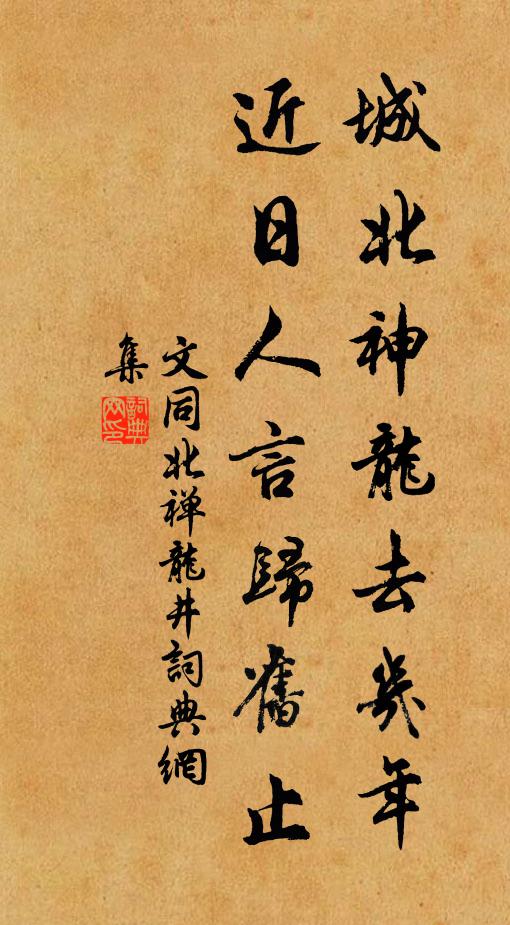 城北神龍去幾年
近日人言歸舊止
文同北禅龍井詞典網
集
詞典網印